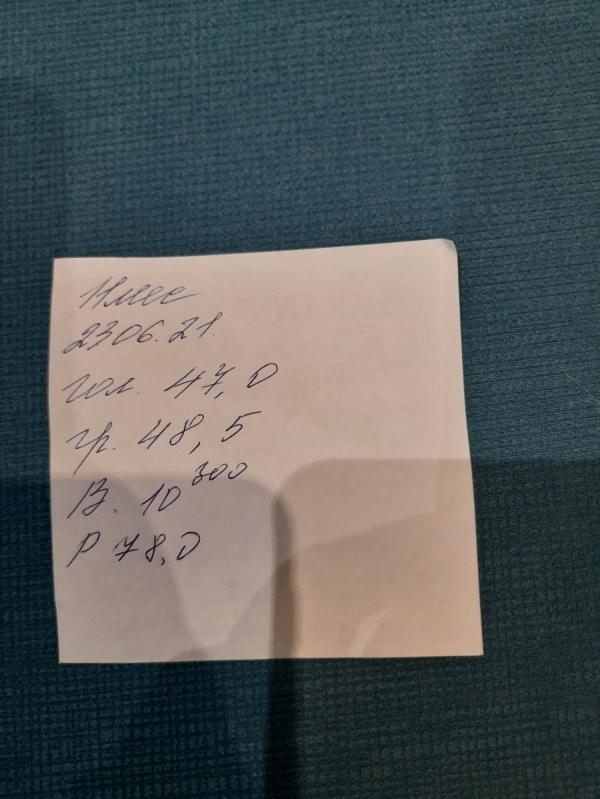 11 мес
23 06. 21.
гол. 47, 0
гр. 48, 5
В. 10 300
Р 78, 0